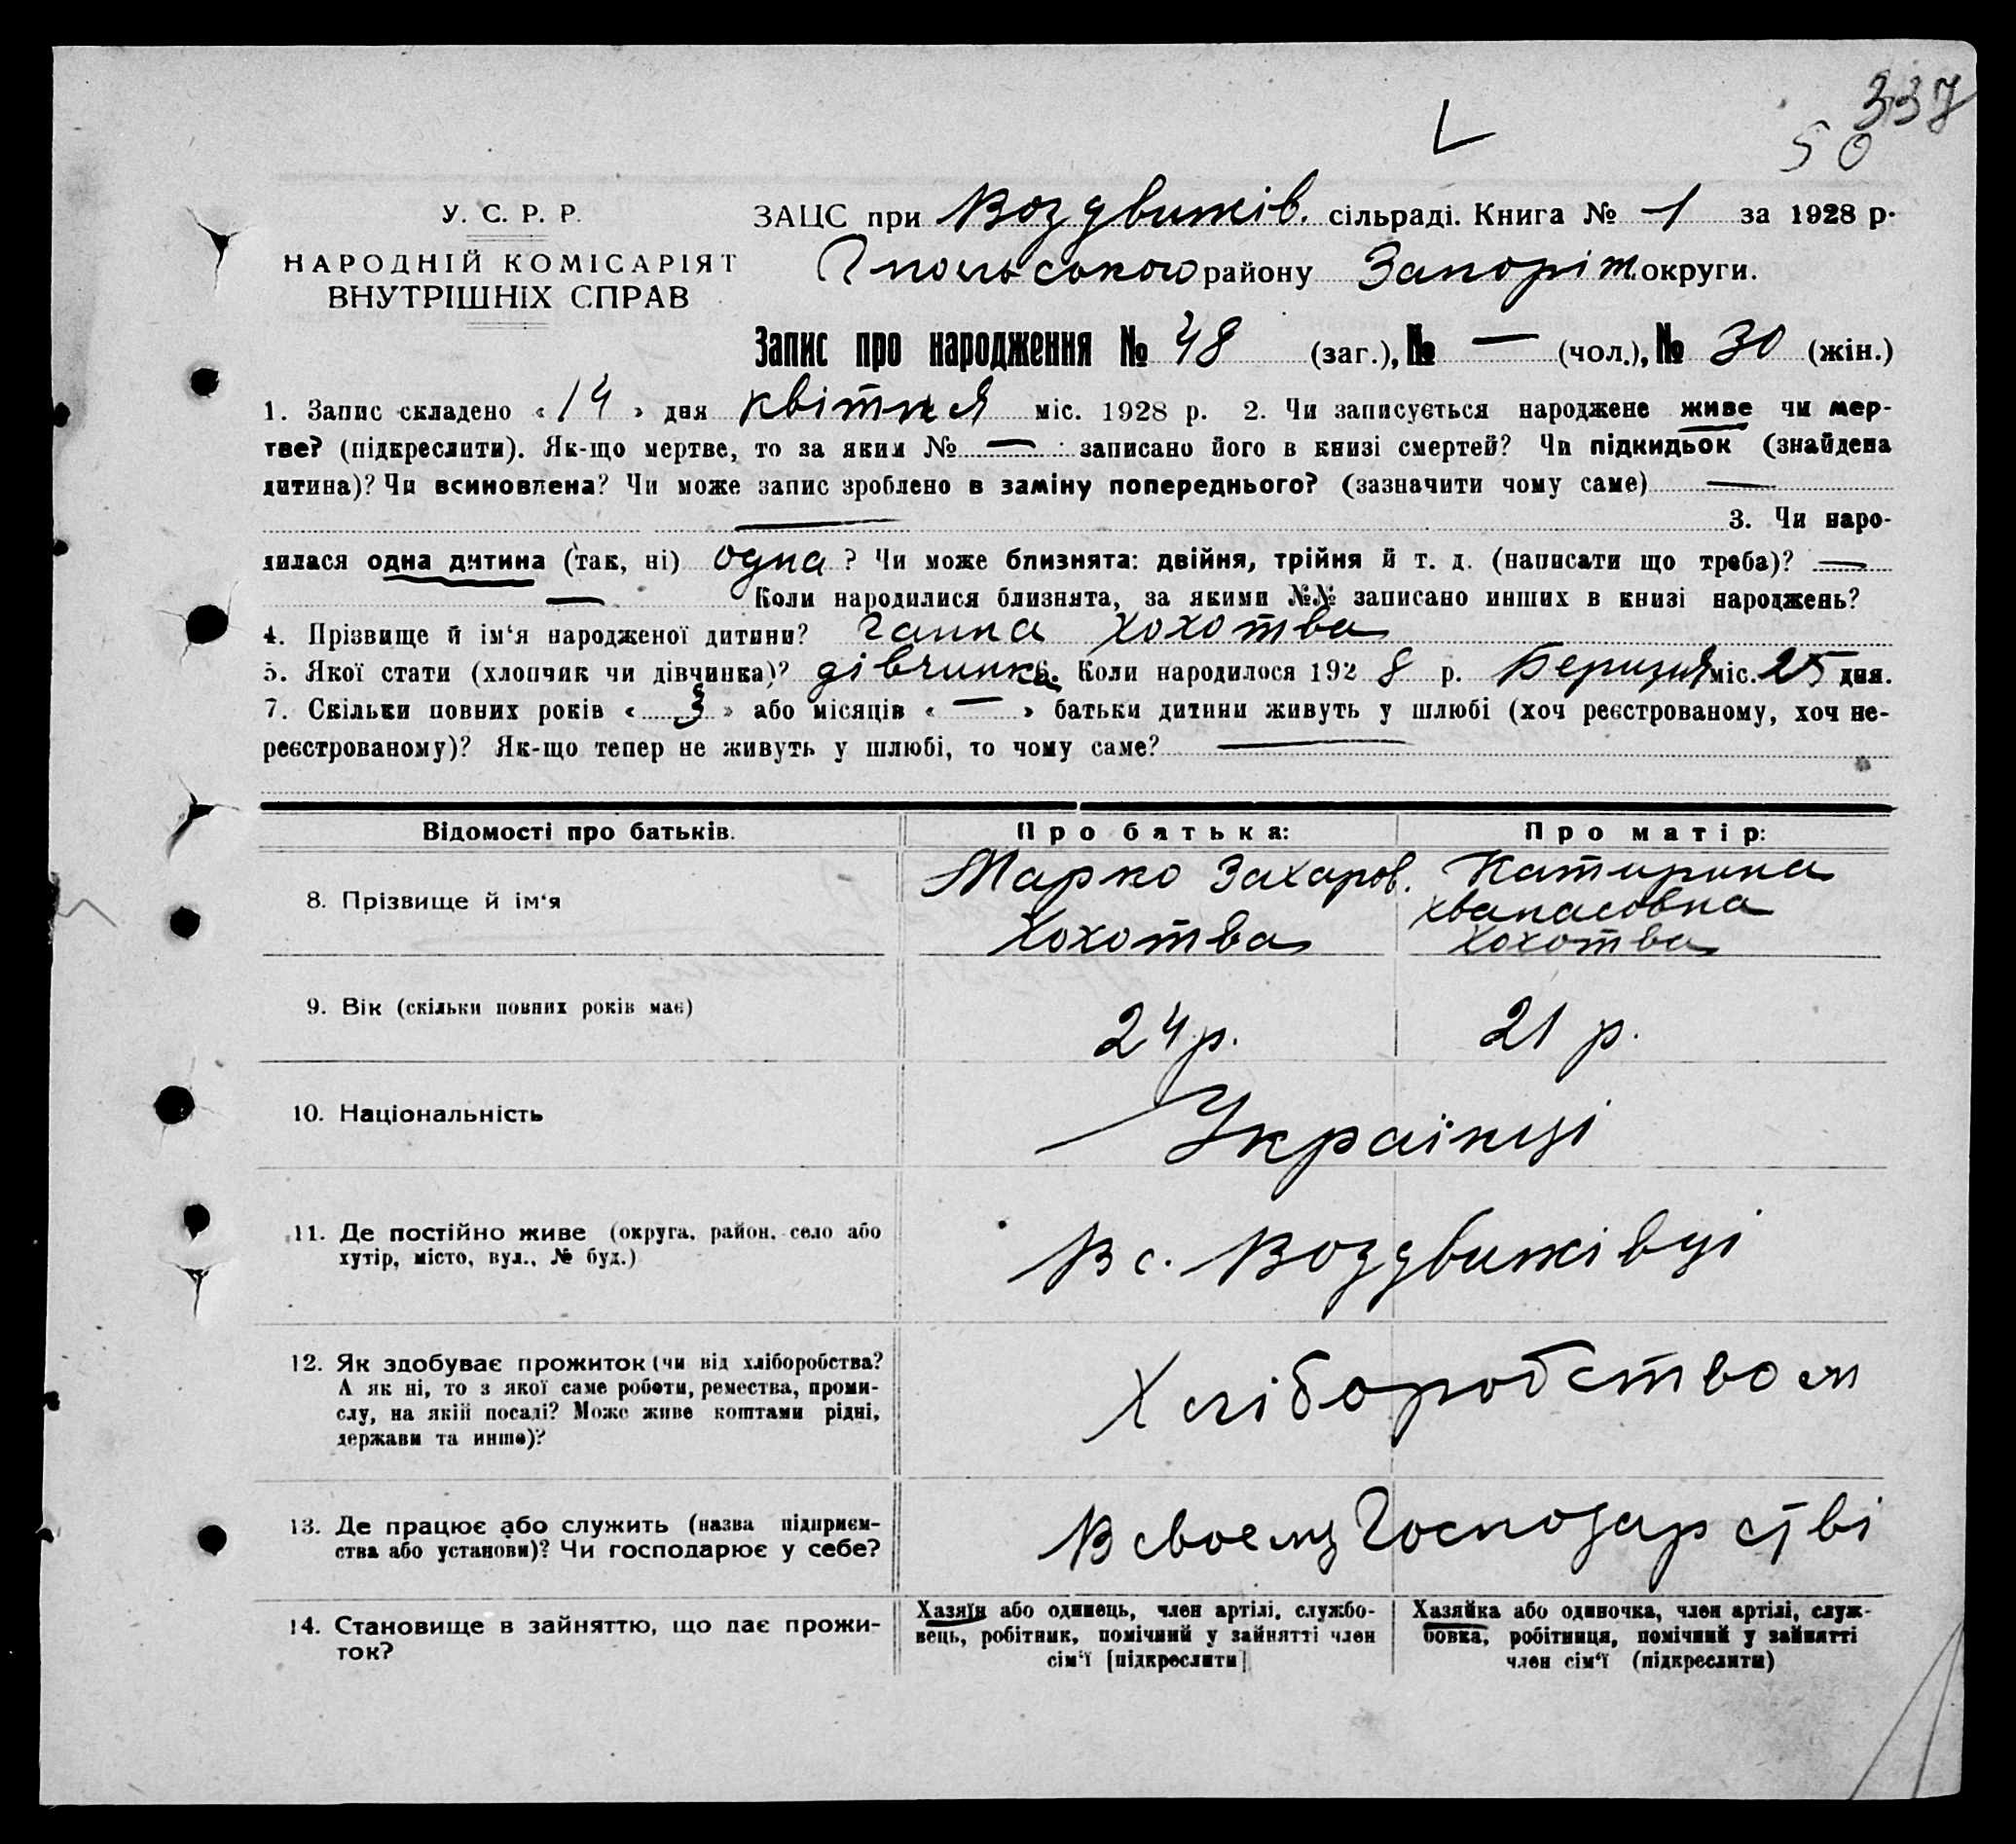 337
50
У. С. Р. Р.
НАРОДНІЙ КОМІСАРІЯТ
ВНУТРІШНІХ СПРАВ
ЗАЦС при Воздвижів. сільраді. Книга № 1 за 1928 р.
району Запоріж. округи.
Запис про народження № 48 (заг.), № — (чол.), № 30 (жін.)
1. Запис складено «14» дня квітня міс. 1928 р. 2. Чи записується народжене живе чи мер-
тве? (підкреслити). Як-що мертве, то за яким № — записано його в книзі смертей? Чи підкидьок (знайдена
дитина)? Чи всиновлена? Чи може запис зроблено в заміну попереднього? (зазначити чому саме) —
— 3. Чи наро-
дилася одна дитина (так, ні) одна ? Чи може близнята: двійня, трійня й т. д. (написати що треба)? —
— Коли народилися близнята, за якими №№ записано инших в книзі народжень?
4. Прізвище й ім'я народженої дитини? Ганна Хохотва
5. Якої стати (хлопчик чи дівчинка)? дівчинка 6. Коли народилося 1928 р. Березня міс. 25 дня.
7. Скільки повних років «3» або місяців «—» батьки дитини живуть у шлюбі (хоч реєстрованому, хоч не-
реєстрованому)? Як-що тепер не живуть у шлюбі, то чому саме? —
Відомості про батьків. Про батька: Про матір:
8. Прізвище й ім'я
Марко Захаров.
Хохотва
Катирина
Хванасовна
Хохотва
9. Вік (скільки повних років має) 24 р. 21 р.
10. Національність Українці
11. Де постійно живе (округа, район, село або
хутір, місто, вул., № буд.)
В с. Воздвижівці
12. Як здобуває прожиток (чи від хліборобства?
А як ні, то з якої саме роботи, ремества, проми-
слу, на якій посаді? Може живе коштами рідні,
держави та инше)?
Хліборобством
13. Де працює або служить (назва підприєм-
ства або установи)? Чи господарює у себе?
В своему Господарстві
14. Становище в зайняттю, що дає прожи-
ток?
Хазяїн або одинець, член артілі, службо-
вець, робітник, помічний у зайнятті член
сім'ї [підкреслити]
Хазяйка або одиночка, член артілі, служ-
бовка, робітниця, помічний у зайнятті
член сім'ї (підкреслити)